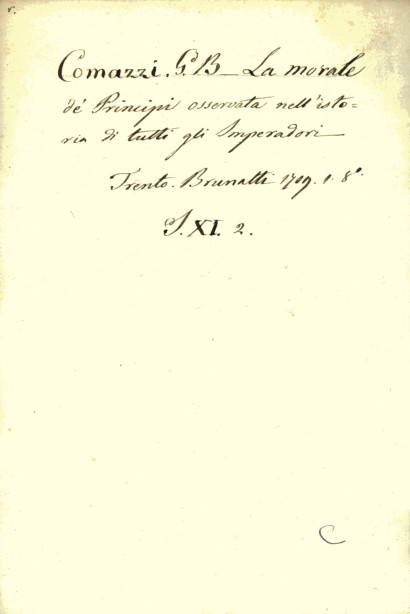 r.
Comazzi. G.º B_ La morale
de' Principi osservata nell'isto=
ria di tutti gli Imperadori_
Trento. Brunatti 1709. 1. 8º.
S.XI. 2.
C